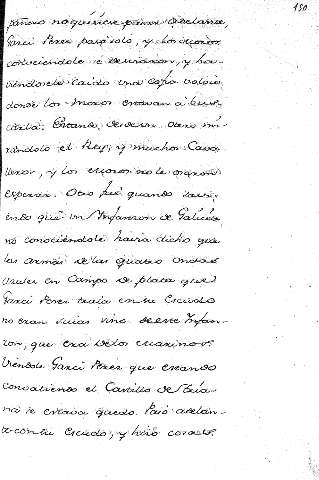 190
pañero no quisiese pasar adelante,
Garci Perez pasó solo, y los moros
conociéndole se desviaron, y ha-
viendosele caido una cofia volvió
donde los moros estavan á bus-
carla: Estando de ver otro mi-
randolo el Rey, y muchos Cava-
lleros, y los moros no le osaron
esperar. Otro fué quando savi-
endo que un Infanzon de Galicia
no conociéndole havia dicho que
las armas de las quatro ondas
azules en Campo de plata que
Garci Perez traía en su Escudo
no eran suias vino de este Infan-
zon, que era de los
Viendole Garci Perez que estando
convatiendo el Castillo de Tria-
na se estava quedo. Pasó adelan-
te con su Escudo, y hizo